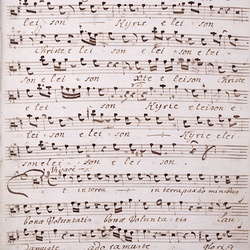 e lei son Kyrie e lei son
Christe e lei son e lei
son e lei son Xte e leison
e lei son Kyrie eleison e
lei son e lei son Kyrie elei
son elei son e lei son
Vivace
et in terra in terra pax hominibus
bonæ Voluntatis bonæ Volunta tis Lau
damuste Ado ramuste glorifi